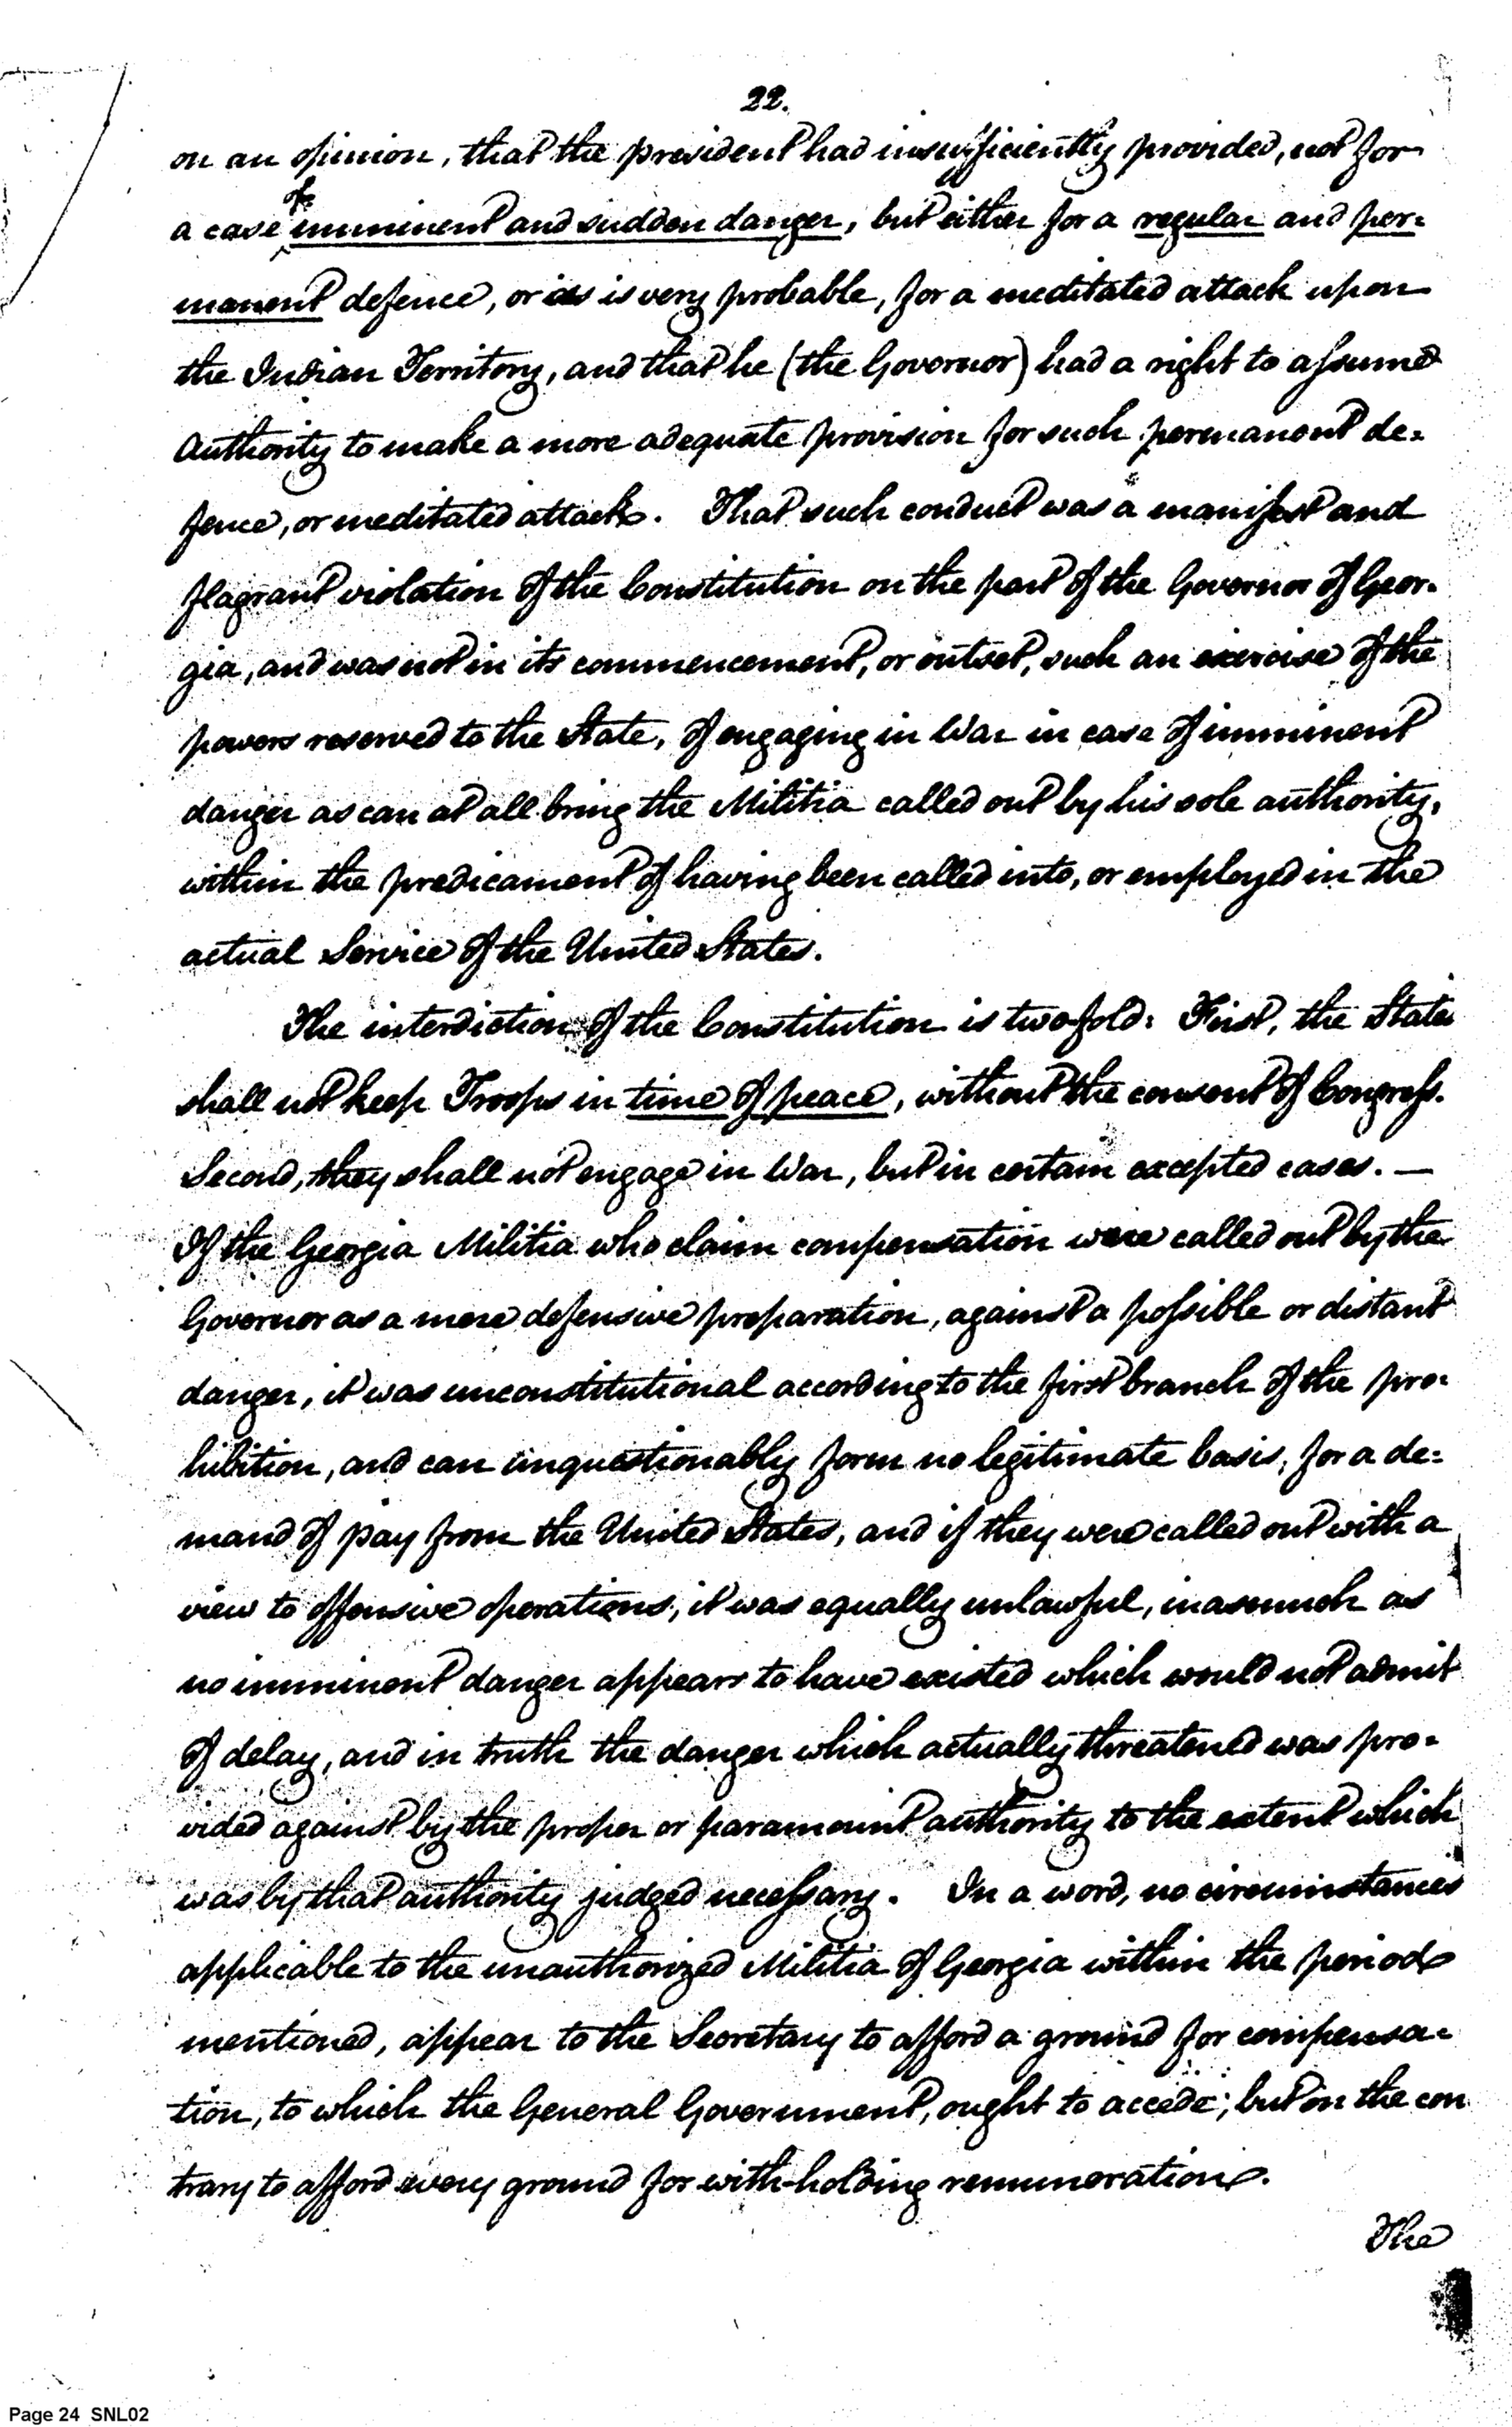 22.
on an opinion, that the president had insufficiently provided, not for
of
a case imminent and sudden danger, but either for a regular and per=
manent defence, or as is very probable, for a meditated attack upon
the Indian Territory, and that he (the Governor) had a right to assume
Authority to make a more adequate provision for such permanent de=
fence, or meditated attack. That such conduct was a manifest and
flagrant violation of the Constitution on the part of the Governor of Geor=
gia, and was not in its commencement, or outset, such an exercise of the
powers reserved to the State, of engaging in War in case of imminent
danger as can at all bring the Militia called out by his sole authority,
within the predicament of having been called into, or employed in the
actual Service of the United States.
The interdiction of the Constitution is twofold: First, the States
shall not keep Troops in time of peace, without the consent of Congress.
Second, they shall not engage in War, but in certain excepted cases. —
If the Georgia Militia who claim compensation were called out by the
Governor as a mere defensive preparation, against a possible or distant
danger, it was unconstitutional according to the first branch of the pro=
hibition, and can unquestionably form no legitimate basis, for a de=
mand of pay from the United States, and if they were called out with a
view to offensive operations, it was equally unlawful, inasmuch as
no imminent danger appears to have existed which would not admit
of delay, and in truth the danger which actually threatened was pro=
vided against by the proper or paramount authority to the extent which
was by that authority judged necessary. In a word, no circumstances
applicable to the unauthorized Militia of Georgia within the periods
mentioned, appear to the Secretary to afford a ground for compensa=
tion, to which the General Government, ought to accede; but on the con
trary to afford every ground for with-holding remuneration.
The
Page 24 SNL02